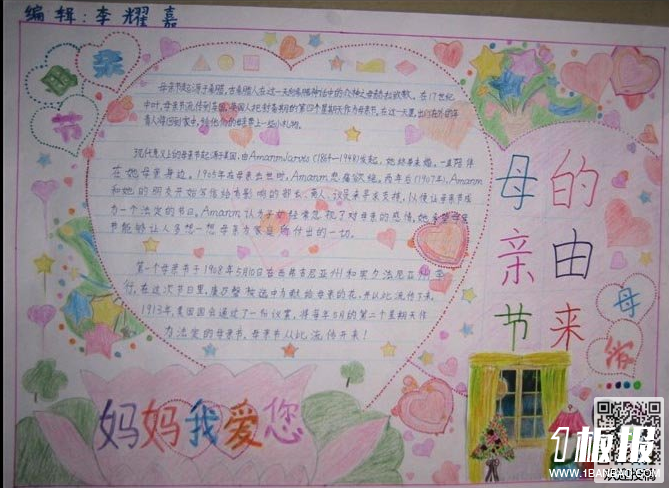 编辑：李耀嘉
母亲节
母亲节起源于希腊，古希腊人在这一天向希腊神话中的众神之母赫拉致敬。在17世纪
中叶，母亲节流传到英国，英国人把封斋期的第四个星期天作为母亲节。在这一天里，出门在外的年
青人将回到家中，给他们的母亲带上一些小礼物。
现代意义上的母亲节起源于美国，由Amanm Jarvis（1864—1948）发起，她终身未婚，一直陪伴
在她母亲身边。1905年在母亲去世时，Amanm悲痛欲绝。两年后（1907年），Amanm
和她的朋友开始写信给有影响的部长、商人、议员来寻求支持，以便让母亲节成
为一个法定的节日。Amanm认为子女经常忽视了对母亲的感情，她希望母亲
节能够让人多想一想母亲为家庭所付出的一切。
第一个母亲节于1908年5月10日在西弗吉尼亚州和宾夕法尼亚州举
行，在这次节日里，康乃馨被选中为献给母亲的花，并以此流传下来。
1913年，美国国会通过了一份议案，将每年5月的第二个星期天作
为法定的母亲节。母亲节从此流传开来！
母亲节
的由来
母爱
妈妈我爱您
1板报
WWW.1BANBAO.COM
欢迎投稿